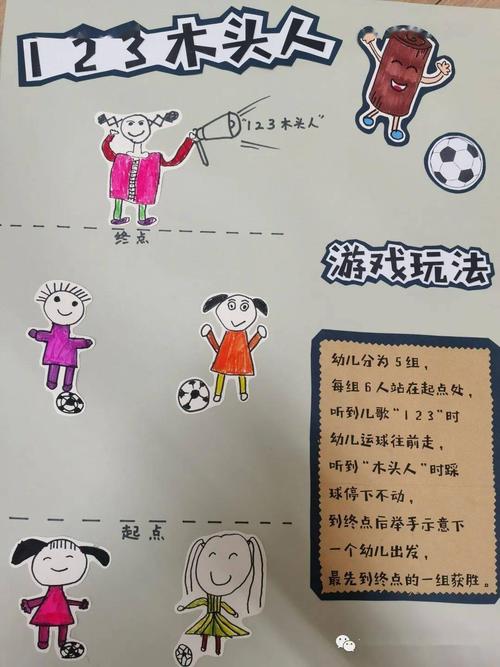 123木头人
"123木头人"
终点
游戏玩法
幼儿分为5组，
每组6人站在起点处，
听到儿歌"123"时
幼儿运球往前走，
听到"木头人"时踩
球停下不动，
到终点后举手示意下
一个幼儿出发，
最先到终点的一组获胜。
起点